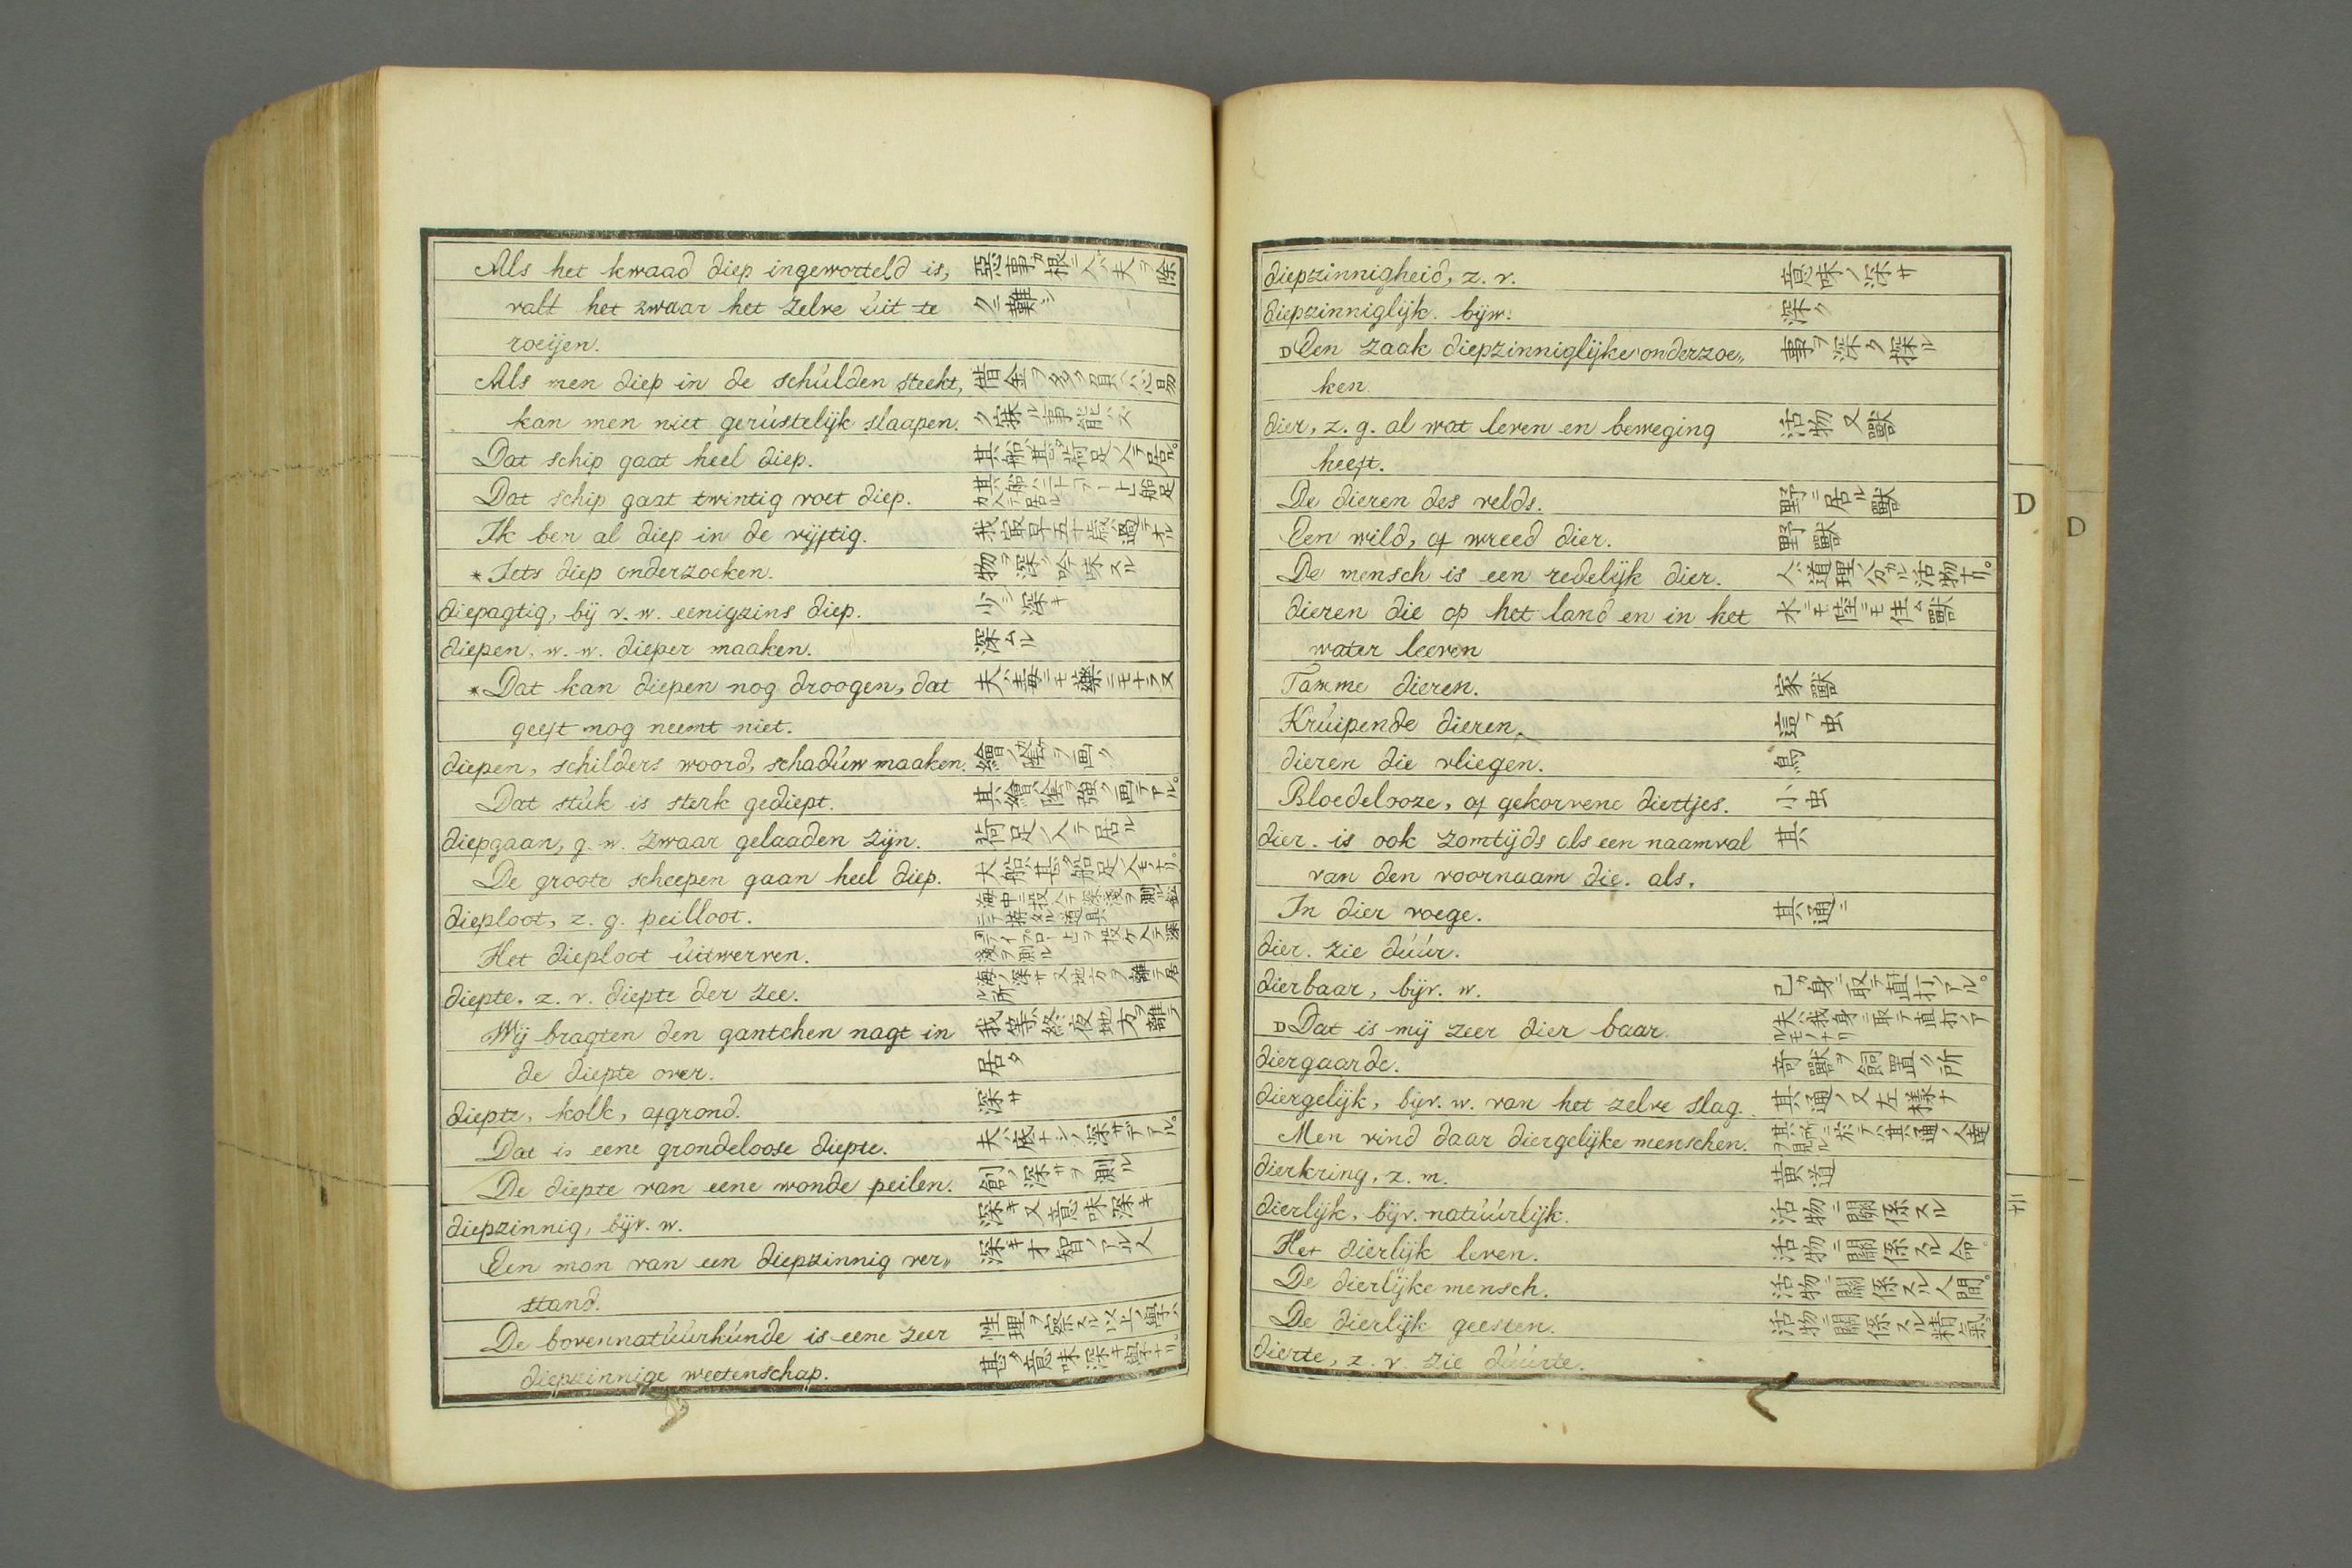 Als het kwaad diep ingeworteld is, 惡事ガ根ニ入ハ夫ヲ除
valt het zwaar het zelve úit te クニ難シ
roeijen.
Als men diep in de schúlden steekt, 借金ヲ多ク負ヘハ心易
kan men niet gerústelijk slaapen. ク寐ル事能ハズ
Dat schip gaat heel diep. 其舩甚タ荷足入テ居ル。
Dat schip gaat twintig voet diep.
Ik ben al diep in de vijftig. 我寂早五十歳過テオル
*Iets diep onderzoeken. 物ヲ深ク吟味スル
diepagtig, bij v. w. eenigzins diep. 少シ深キ
diepen, w. w. dieper maaken. 深ムル
*Dat kan diepen nog droogen, dat 夫ハ毒ニモ藥ニモナラヌ
geeft nog neemt niet.
diepen, schilders woord, schadúw maaken. 繪ノ陰ヲ画ク
Dat stúk is sterk gediept. 其繪ハ陰ヲ強ク画テアル。
diepgaan, g. w. zwaar gelaaden zijn. 荷足ノ入テ居ル
De groote scheepen gaan heel diep. 大舩ハ甚タ舩足ノ入モノナリ。
dieploot, z. g. peilloot.
Het dieploot úitwerven.
diepte, z. v. diepte der zee. 海ノ深サ又地方ヲ離テ居ル所
Wij bragten den gantchen nagt in 我等ハ終夜地方ヲ離テ
de diepte over. 居タ
diepte, kolk, afgrond. 深サ
Dat is eene grondeloose diepte. 夫ハ底ナシノ深サデアル。
De diepte van eene wonde peilen. 創ノ深サヲ測ル
diepzinnig, bijv. w. 深キ又意味深キ
Een man van een diepzinnig ver„ 深キ才智ノアル人
stand.
De bovennatúúrkúnde is eene zeer 性理ヲ察スル以上ノ學ハ
diepzinnige weetenschap. 甚タ意味深キ學ナリ。
diepzinnigheid, z. v. 意味ノ深サ
diepzinniglijk. bijw. 深ク
D Een zaak diepzinniglijke onderzoe„ 事ヲ深ク探ル
ken.
dier, z. g. al wat leven en beweging 活物又獸
heeft.
De dieren des velds. 野ニ居ル獸
Een wild, of wreed dier. 野獸
De mensch is een redelijk dier. 人ハ道理ノ分ル活物ナリ。
dieren die op het land en in het 水ニモ陸ニモ住ム獸
water leeven
Tamme dieren. 家獸
Krúipende dieren, 這フ虫
dieren die vliegen. 鳥
Bloedelooze, of gekorvene diertjes. 小虫
dier. is ook zomtijds als een naamval 其
van den voornaam die. als,
In dier voege. 其通ニ
dier. zie dúúr.
dierbaar, bijv. w. 己ガ身ニ取テ直打ノアル。
D Dat is mij zeer dier baar. 夫ハ我身ニ取テ直打ノアルモノナリ
diergaarde. 奇獸ヲ飼置ク所
diergelijk, bijv. w. van het zelve slag. 其通ノ又左樣ナ
Men vind daar diergelijke menschen. 其所ニ於テハ其通ノ人達ヲ見ル
dierkring, z. m. 黄道
dierlijk, bijv. natúúrlijk. 活物ニ關係スル
Het dierlijk leven. 活物ニ關係スル命。
De dierlijke mensch. 活物ニ關係スル人間。
De dierlijk geesten. 活物ニ關係スル精氣。
dierte, z. v. zie dúúrte.
D
D